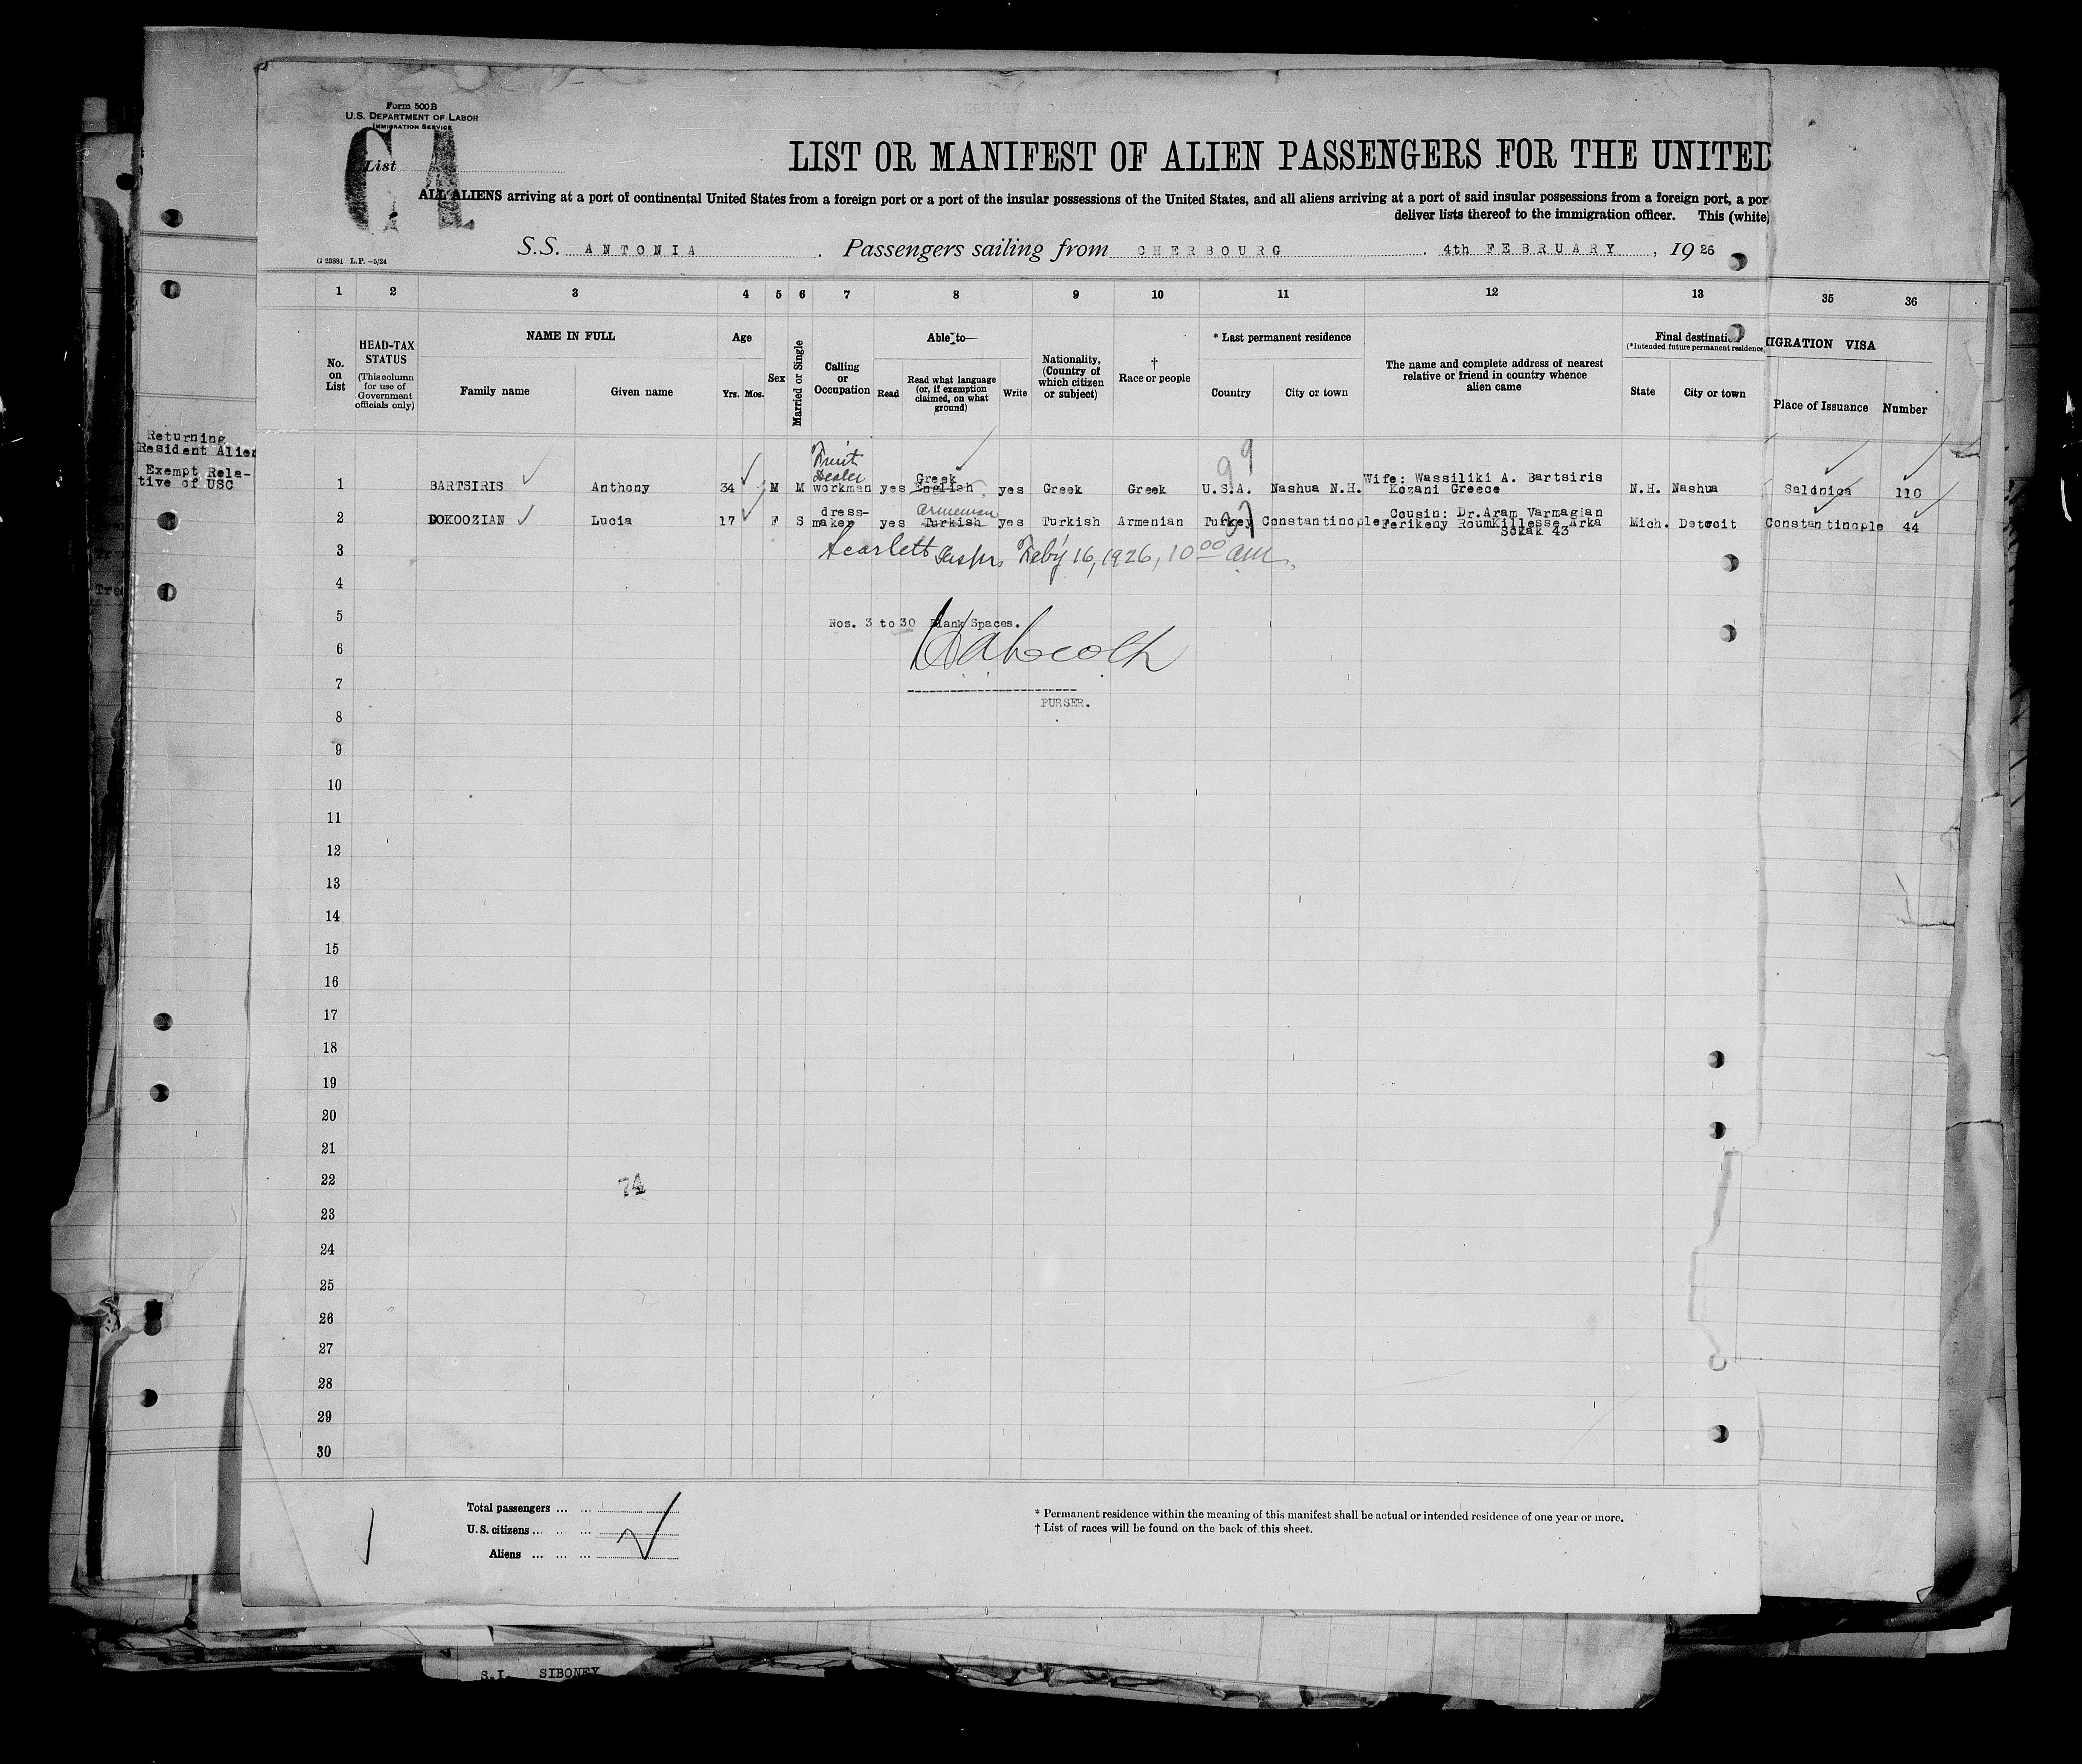 Form 500B
U.S. DEPARTMENT OF LABOR
IMMIGRATION SERVICE
CA
List
LIST OR MANIFEST OF ALIEN PASSENGERS FOR THE UNITED
ALL ALIENS arriving at a port of continental United States from a foreign port or a port of the insular possessions of the United States, and all aliens arriving at a port of said insular possessions from a foreign port, a por
deliver lists thereof to the immigration officer. This (white)
S.S. ANTONIA. Passengers sailing from CHERBOURG. 4th FEBRUARY, 1926
G 23881 L.P.—5/24
1 2 3 4 5 6 7 8 9 10 11 12 13 35 36
No. on List
HEAD-TAX STATUS (This column for use of Government officials only)
NAME IN FULL
Family name
Given name
Age
Yrs. Mos.
Sex
Married or Single
Calling or Occupation
Able to—
Read
Read what language (or, if exemption claimed, on what ground)
Write
Nationality, (Country of which citizen or subject)
† Race or people
* Last permanent residence
Country
City or town
The name and complete address of nearest relative or friend in country whence alien came
Final destination
(*Intended future permanent residence)
State
City or town
IGRATION VISA
Place of Issuance
Number
Returning
Resident Alien
Exempt Rela-
tive of USC
Fruit
Dealer
Greek
99
1 BARTSIRIS Anthony 34 M M workman yes English yes Greek Greek U.S.A. Nashua N.H. Wife: Wassiliki A. Bartsiris Kozani Greece N.H. Nashua Salonica 110
Armenian
2 DOKOOZIAN Lucia 17 F S dress-maker yes Turkish yes Turkish Armenian Turkey Constantinople Cousin: Dr.Aram Varmagian Ferikeny RoumKillesse Arka Sokak 43 Mich. Detroit Constantinople 44
3 Scarlett Insp. Feby 16, 1926, 10 00 am.
4
5 Nos. 3 to 30 Blank Spaces.
6
7
PURSER.
8
9
10
11
12
13
14
15
16
17
18
19
20
21
22 74
23
24
25
26
27
28
29
30
Total passengers ... ...
U.S. citizens ... ... ...
Aliens ... ... ...
* Permanent residence within the meaning of this manifest shall be actual or intended residence of one year or more.
† List of races will be found on the back of this sheet.
S.I. SIBONEY